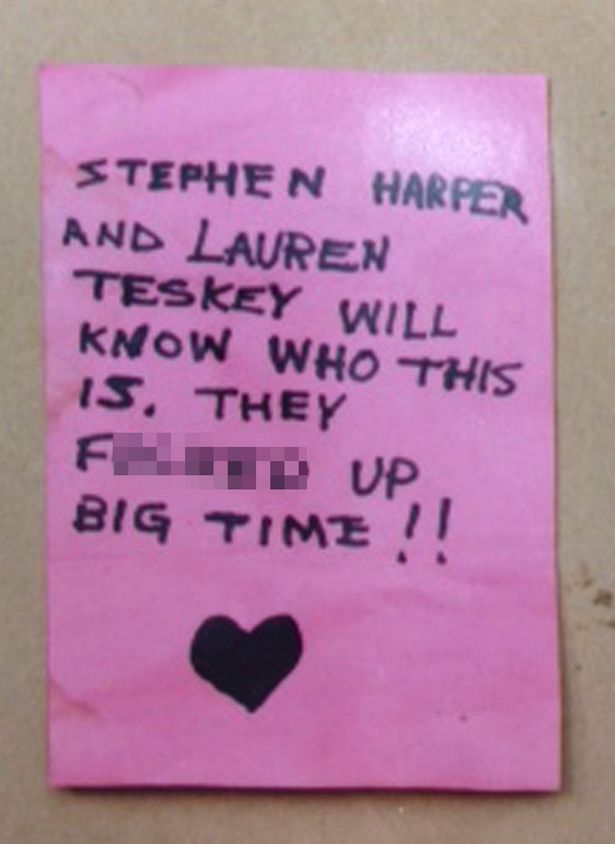 STEPHEN HARPER
AND LAUREN
TESKEY WILL
KNOW WHO THIS
IS. THEY
UP
BIG TIME!!